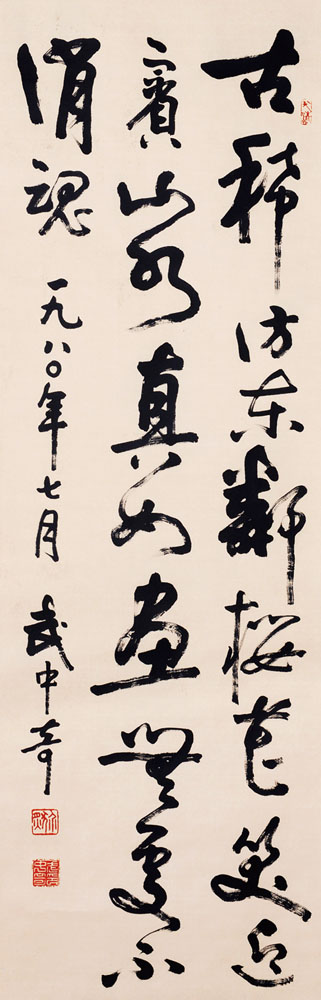 古稀访东邻樱花笑迎
宾山水真如画无处不
消魂 一九八〇年七月 武中奇